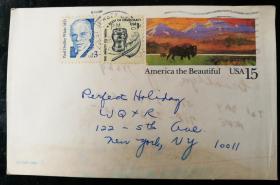 Paul Dudley White MD
3
America the Beautiful
USA 15
Perfect Holiday
WQXR
122 - 5th Ave
New York, NY
10011